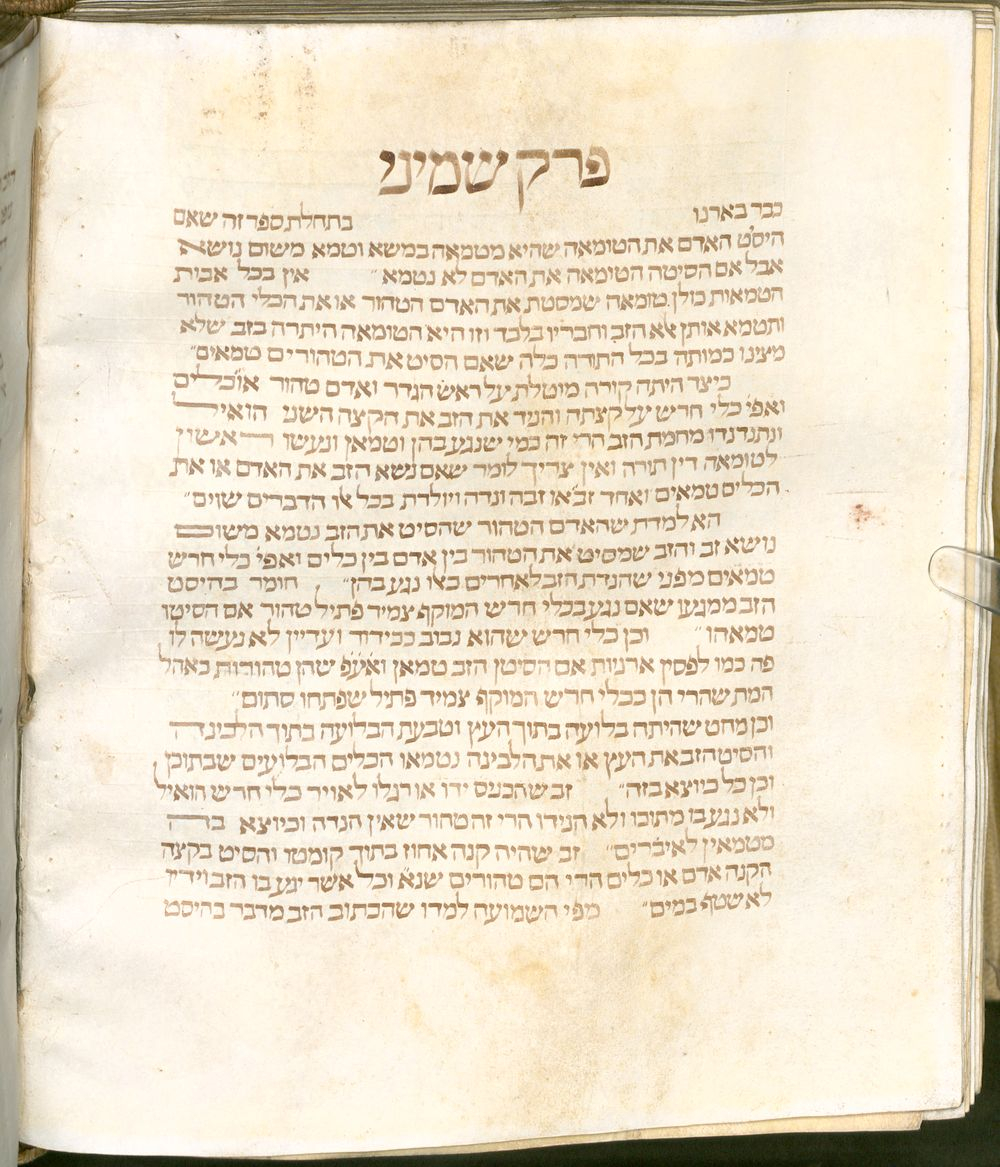 פרק שמיני
כבר בארנו בתחלת ספר זה שאם
היסיט האדם את הטומאה שהיא מטמאה במשא וטמא משום נושא
אבל אם הסיטה הטומאה את האדם לא נטמא״ אין בכל אבות
הטמאות כולן טומאה שמסטת את האדם הטהור או את הכלי הטהור
ותטמא אותן אלא הזב וחבריו בלבד וזו היא הטומאה היתרה בזב שלא
מצינו כמותה בכל התורה כלה שאם הסיט את הטהורים טמאים״
כיצד היתה קורה מוטלת על ראש הגדר ואדם טהור או כלים
ואפי׳ כלי חרש על קצתה והניד את הזב את הקצה השני הואיל
ונתנדנדו מחמת הזב הרי זה כמי שנגע בהן וטמאן ונעשו ראשון
לטומאה דין תורה ואין צריך לומר שאם נשא הזב את האדם או את
הכלים טמאים ואחד זב או זבה ונדה ויולדת בכל אלו הדברים שוים״
הא למדת שהאדם הטהור שהסיט את הזב נטמא משום
נושא זב והזב שמסיט את הטהור בין אדם בין כלים ואפי׳ כלי חרש
טמאים מפני שהנדת הזב לאחרים כאלו נגע בהן״ חומר בהיסט
הזב ממגעו שאם נגע בכלי חרש המוקף צמיד פתיל טהור אם הסיטו
טמאהו״ וכן כלי חרש שהוא נבוב ככידור ועדיין לא נעשה לו
פה כמו לפסין ארניות אם הסיטן הזב טמאן ואע״פ שהן טהורות באהל
המת שהרי הן ככלי חרש המוקף צמיד פתיל שפתחו סתום״
וכן מחט שהיתה בלועה בתוך העץ וטבעת הבלועה בתוך הלבינה
והסיט הזב את העץ או את הלבינה נטמאו הכלים הבלועים שבתוכן
וכן כל כיוצא בזה״ זב שהכניס ידו או רגלו לאויר כלי חרש הואיל
ולא נגע בו מתוכו ולא הנידו הרי זה טהור שאין הנדה וכיוצא בה
מטמאין לאיברים״ זב שהיה קנה אחוז בתוך קומטו והסיט בקצה
הקנה אדם או כלים הרי הם טהורים שנא׳ וכל אשר יגע בו הזב וידיו
לא שטף במים״ מפי השמועה למדו שהכתוב הזב מדבר בהיסט